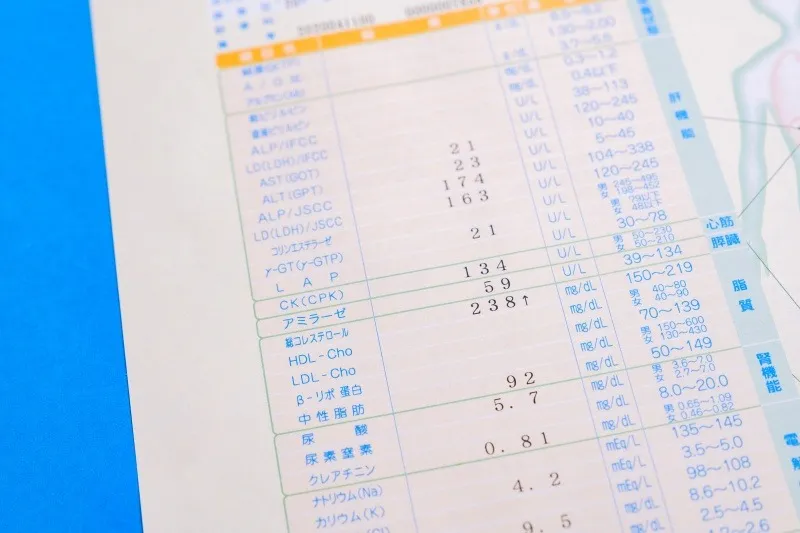 A / G 比 1.30～2.00
アルブミン 3.7～5.5
総ビリルビン mg/dL 0.3～1.2
直接ビリルビン mg/dL 0.4以下
ALP/IFCC U/L 38～113
LD(LDH)/IFCC U/L 120～245
AST(GOT) 21 U/L 10～40 肝機能
ALT(GPT) 23 U/L 5～45
ALP/JSCC 174 U/L 104～338
LD(LDH)/JSCC 163 U/L 120～245
コリンエステラーゼ U/L 男 245～495 女 198～452
γ-GT(γ-GTP) 21 U/L 男 79以下 女 48以下
L A P U/L 30～78
CK(CPK) 134 U/L 男 50～230 女 50～210 心筋
アミラーゼ 59 U/L 39～134 膵臓
総コレステロール 238↑ mg/dL 150～219 脂質
HDL-Cho mg/dL 男 40～80 女 40～90
LDL-Cho mg/dL 70～139
β-リポ蛋白 mg/dL 男 150～600 女 130～430
中性脂肪 92 mg/dL 50～149
尿酸 5.7 mg/dL 男 3.6～7.0 女 2.7～7.0 腎機能
尿素窒素 mg/dL 8.0～20.0
クレアチニン 0.81 mg/dL 男 0.65～1.09 女 0.46～0.82
ナトリウム(Na) mEq/L 135～145 電解
カリウム(K) 4.2 mEq/L 3.5～5.0
mEq/L 98～108
9.5 mg/dL 8.6～10.2
mg/dL 2.5～4.5